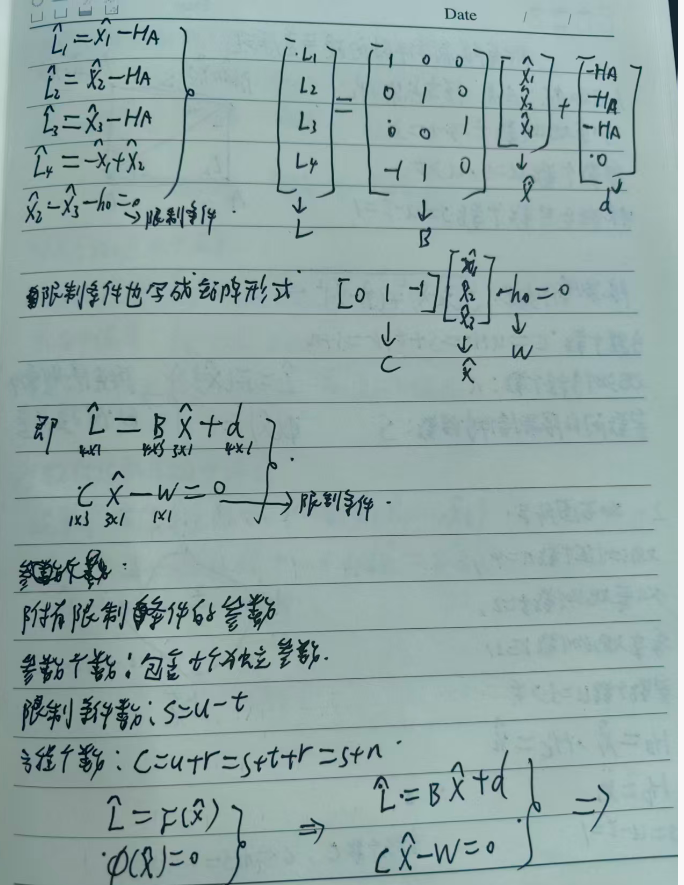 Date / /
L̂₁=x̂₁-HA
L̂₂=x̂₂-HA
L̂₃=x̂₃-HA
L̂₄=-x̂₁+x̂₂
x̂₂-x̂₃-h₀=0 → 限制条件.
[L₁ L₂ L₃ L₄] = [1 0 0; 0 1 0; 0 0 1; -1 1 0] [x̂₁ x̂₂ x̂₃] + [-HA -HA -HA 0]
↓ L ↓ B ↓ X̂ ↓ d
限制条件也写成矩阵形式 [0 1 -1] [x̂₁ x̂₂ x̂₃] -h₀=0
↓ C ↓ X̂ ↓ W
即 L̂ = B X̂ + d
4×1 4×3 3×1 4×1
C X̂ - W = 0 → 限制条件.
1×3 3×1 1×1
附有限制条件的参数
参数个数：包含t个独立参数.
限制条件数：s=u-t
方程个数：C=u+r=s+t+r=s+n.
L̂=F(X̂) ⇒ L̂=BX̂+d ⇒
Φ(X̂)=0 CX̂-W=0